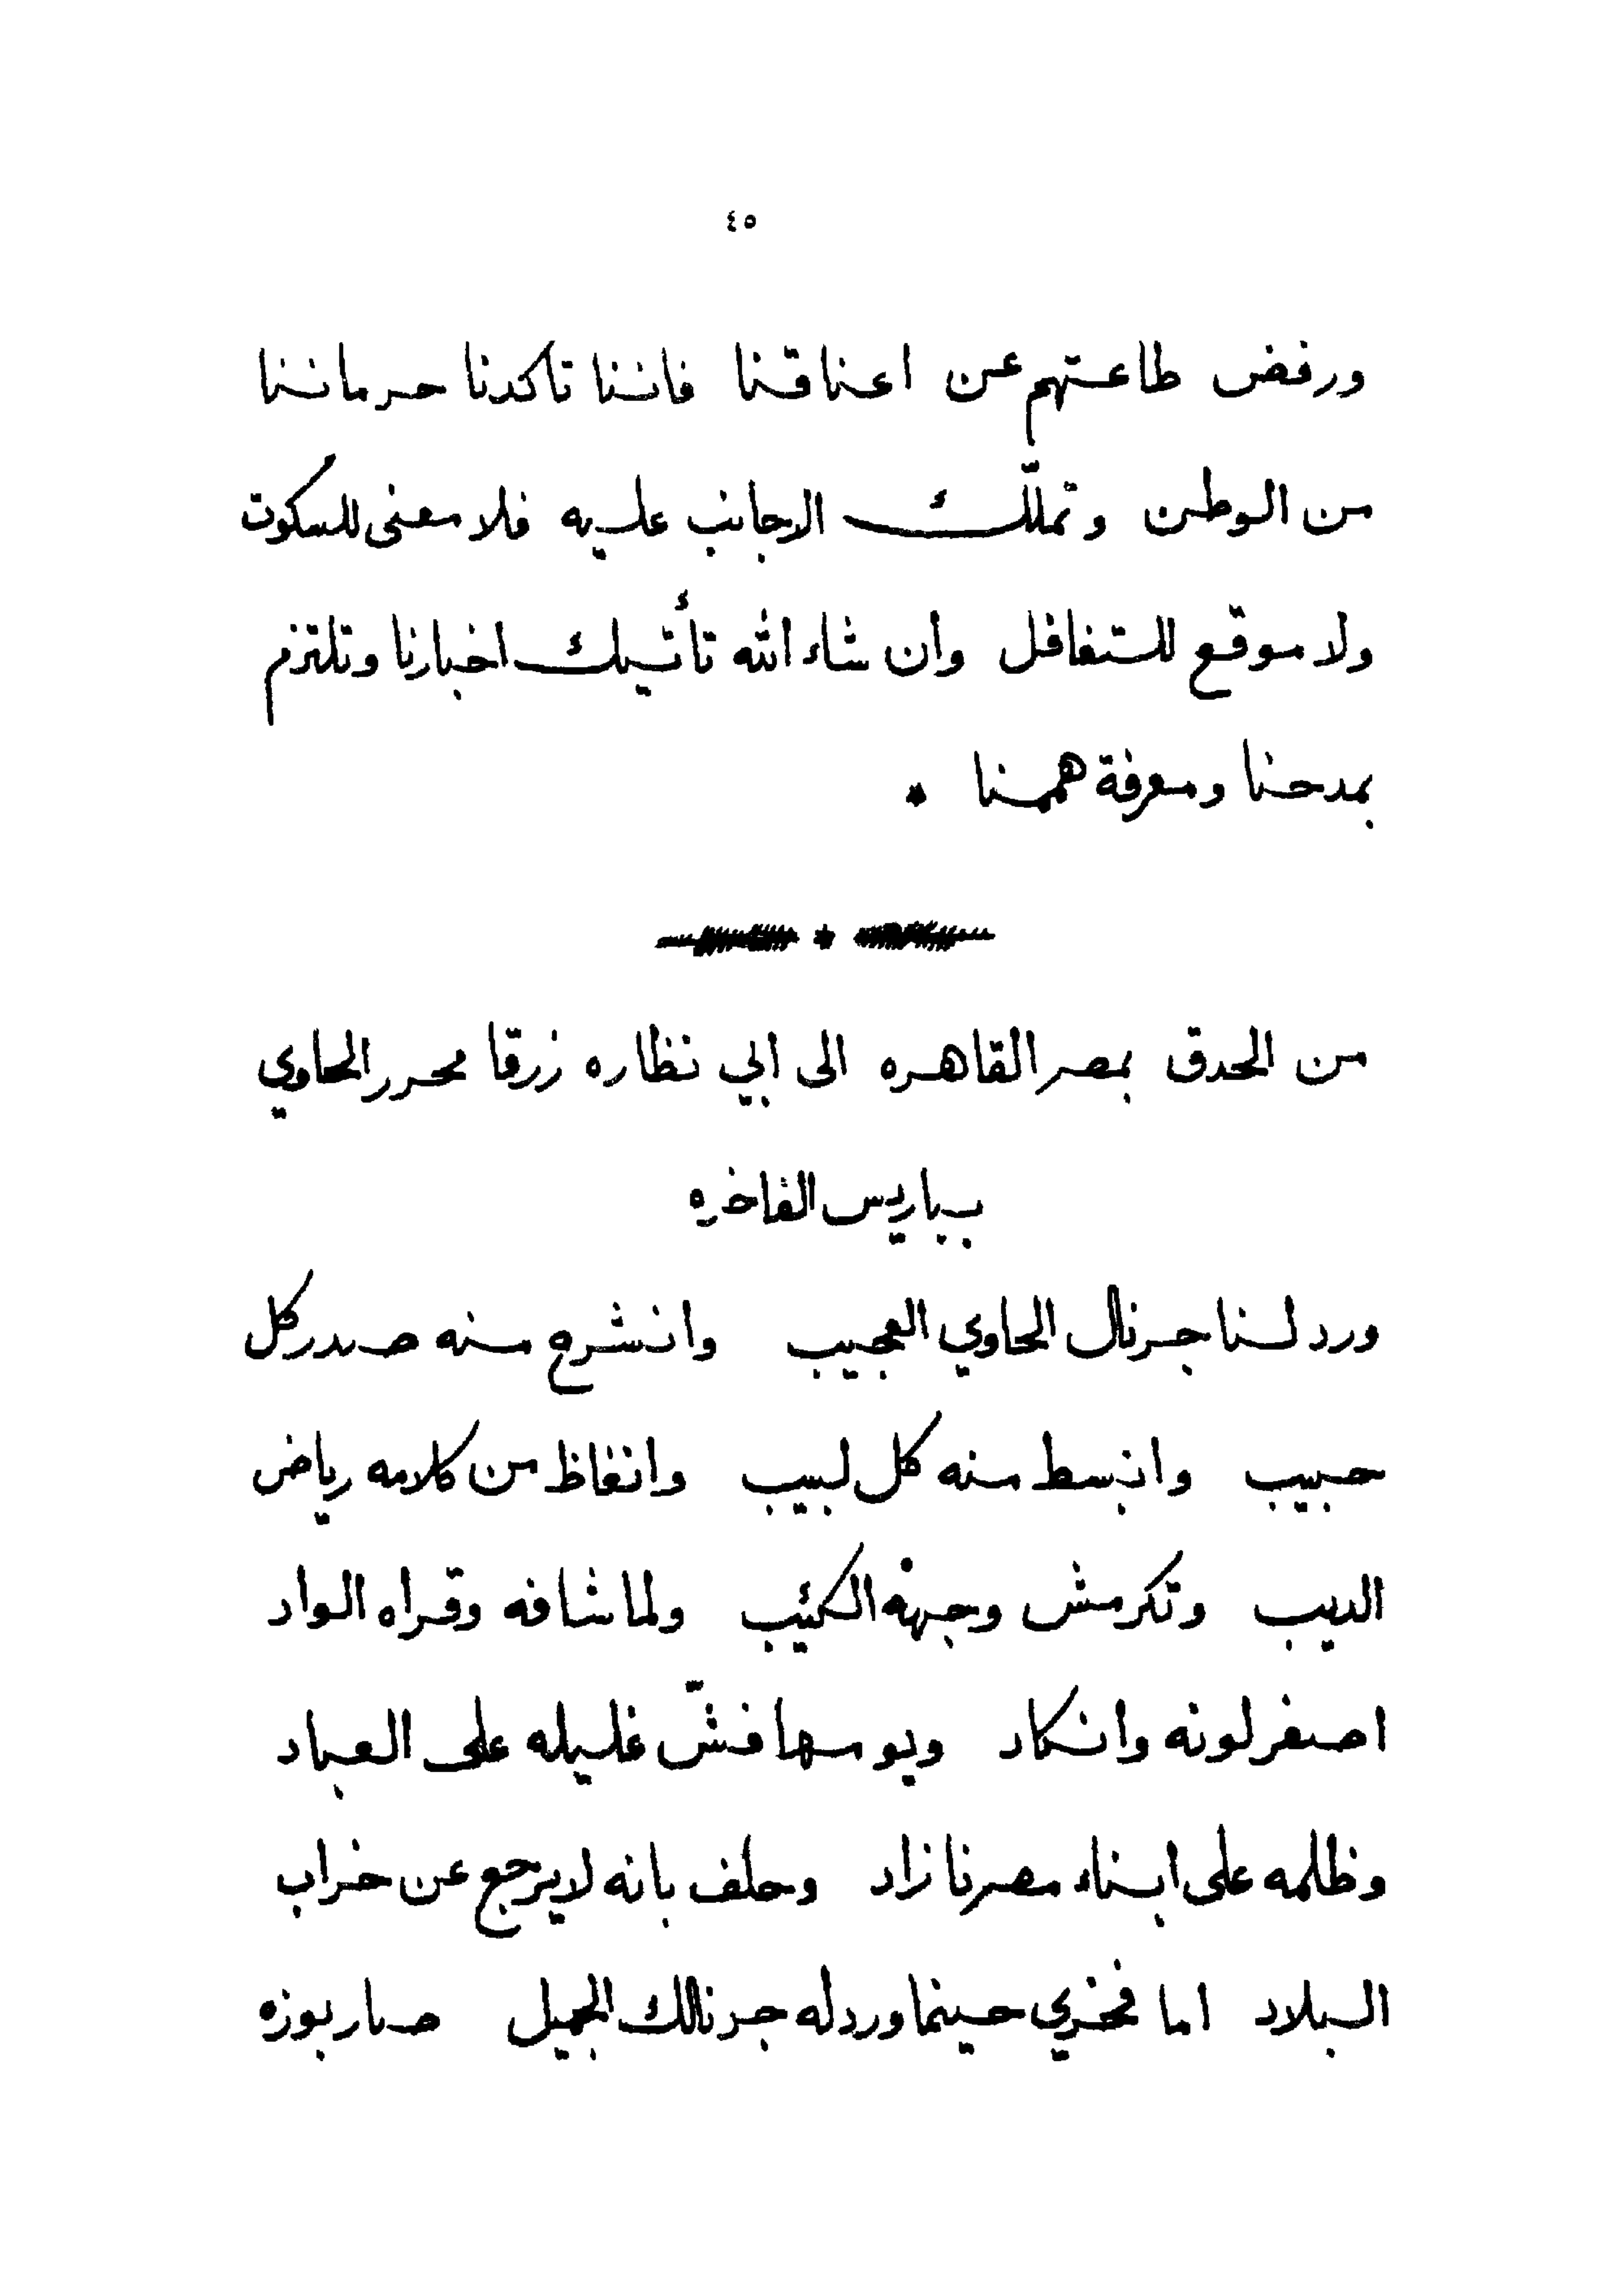 ٤٥
ورفض طاعتهم عن اعناقنا فاننا تاكدنا حرماننا
من الوطن وتملّك الاجانب عليه فلا معنى للسكوت
ولا موقع للتغافل وان شاء الله تأتيك اخبارنا وتلتزم
بمدحنا ومعرفة هممنا *
*
من الحدق بمصر القاهره الى ابي نظاره زرقا محرر الحاوي
بباريس الفاخره
ورد لنا جرنال الحاوي العجيب وانشرح منه صدر كل
حبيب وانبسط منه كل لبيب وانغاظ من كلامه رياض
الديب وتكرمش وجهه الكئيب ولما شافه وقراه الواد
اصفر لونه وانكاد ويومها فشّ غليله على العباد
وظلمه على ابناء مصرنا زاد وحلف بانه لايرجع عن خراب
البلاد اما فخري حينما ورد له جرنالك الجميل صار بوزه